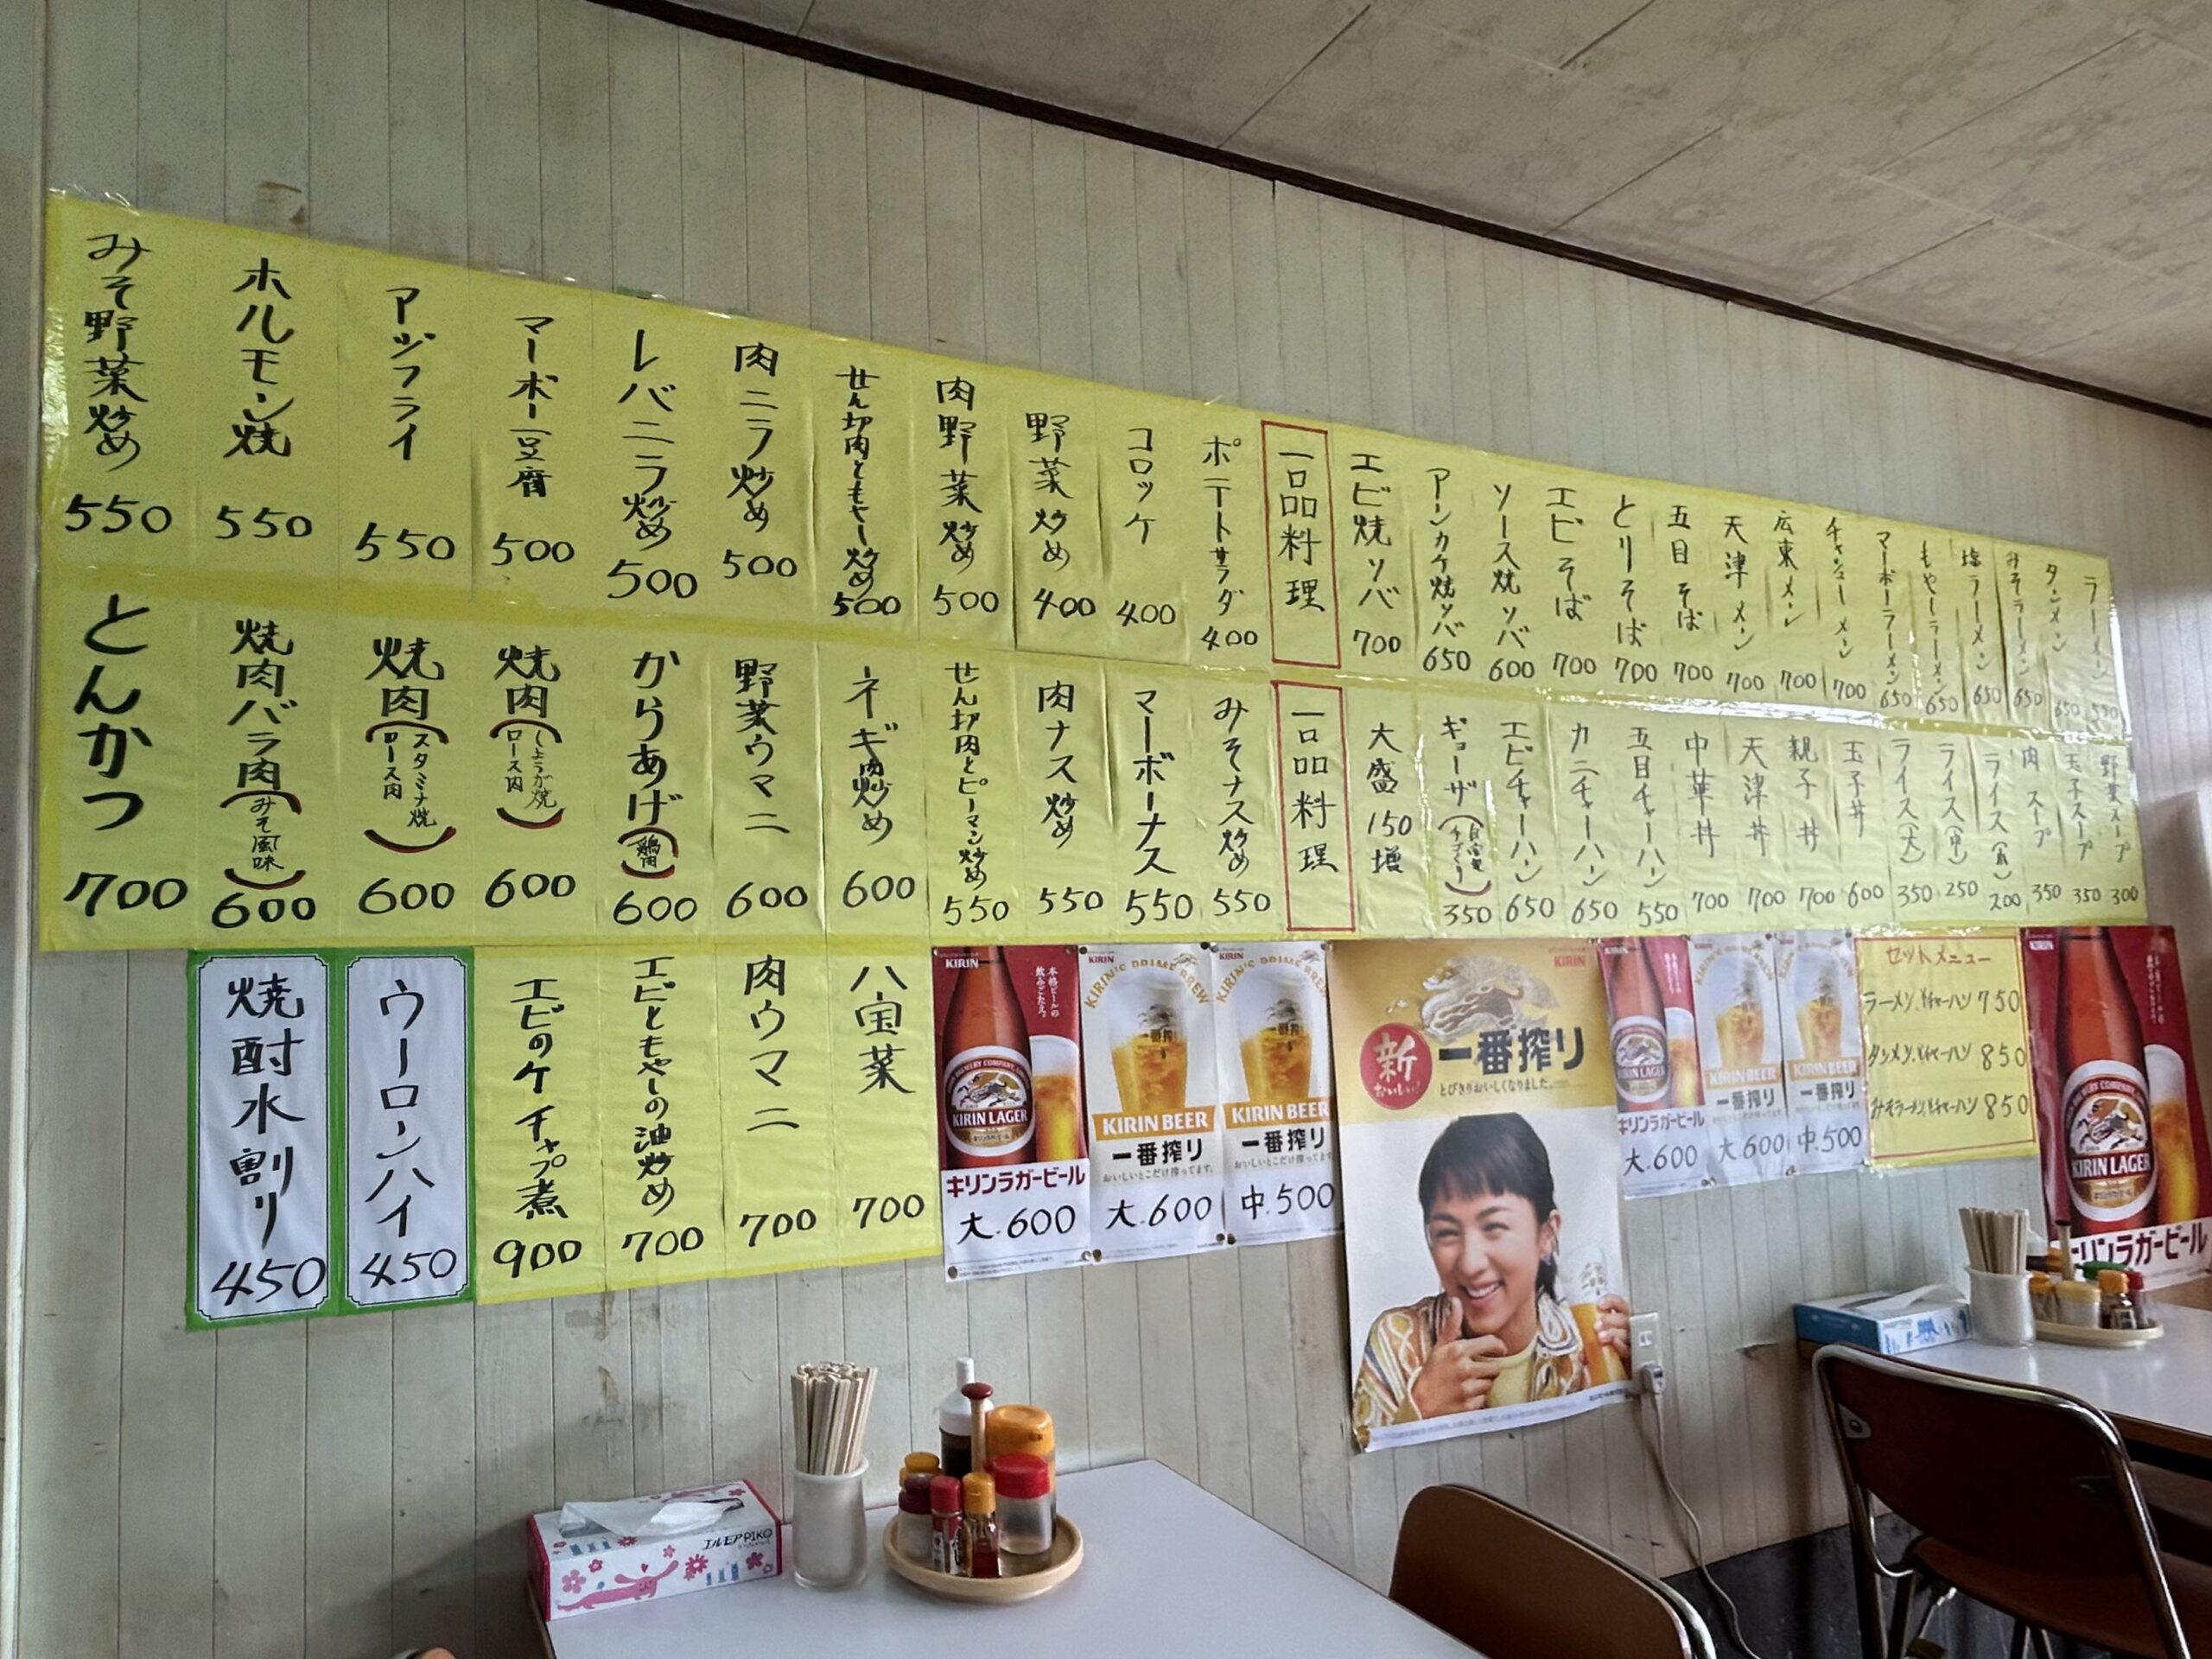 ラーメン 550
タンメン 650
みそラーメン 650
塩ラーメン 650
もやしラーメン 650
マーボーラーメン 650
チャシューメン 700
広東メン 700
天津メン 700
五目そば 700
とりそば 700
エビそば 700
ソース焼ソバ 600
アンカケ焼ソバ 650
エビ焼ソバ 700
一品料理
ポテトサラダ 400
コロッケ 400
野菜炒め 400
肉野菜炒め 500
せん切肉ともやし炒め 500
肉ニラ炒め 500
レバニラ炒め 500
マーボー豆腐 500
アジフライ 550
ホルモン焼 550
みそ野菜炒め 550
野菜スープ 300
玉子スープ 350
肉スープ 350
ライス(小) 200
ライス(中) 250
ライス(大) 350
玉子丼 600
親子丼 700
天津丼 700
中華丼 700
五目チャーハン 550
カニチャーハン 650
エビチャーハン 650
ギョーザ(自家製手づくり) 350
大盛150増
一品料理
みそナス炒め 550
マーボーナス 550
肉ナス炒め 550
せん切肉とピーマン炒め 550
ネギ肉炒め 600
野菜ウマニ 600
からあげ(鶏肉) 600
焼肉(しょうが焼 ロース肉) 600
焼肉(スタミナ焼 ロース肉) 600
焼肉バラ肉(みそ風味) 600
とんかつ 700
八宝菜 700
肉ウマニ 700
エビともやしの油炒め 700
エビのケチャプ煮 900
ウーロンハイ 450
焼酎水割り 450
KIRIN
本格ビールの
飲みごたえ。
KIRIN LAGER
キリンラガービール
大.600
KIRIN
KIRIN'S PRIME BREW
一番搾り
KIRIN BEER
一番搾り
おいしいとこだけ搾ってます。
大.600
KIRIN
KIRIN'S PRIME BREW
一番搾り
KIRIN BEER
一番搾り
おいしいとこだけ搾ってます。
中.500
KIRIN
新
おいしい!
一番搾り
とびきりおいしくなりました。
KIRIN
KIRIN LAGER
キリンラガービール
大.600
KIRIN BEER
一番搾り
大.600
KIRIN BEER
一番搾り
中.500
セットメニュー
ラーメン,半チャーハン 750
タンメン,半チャーハン 850
みそラーメン,半チャーハン 850
KIRIN
KIRIN LAGER
キリンラガービール
エルモア PIKO